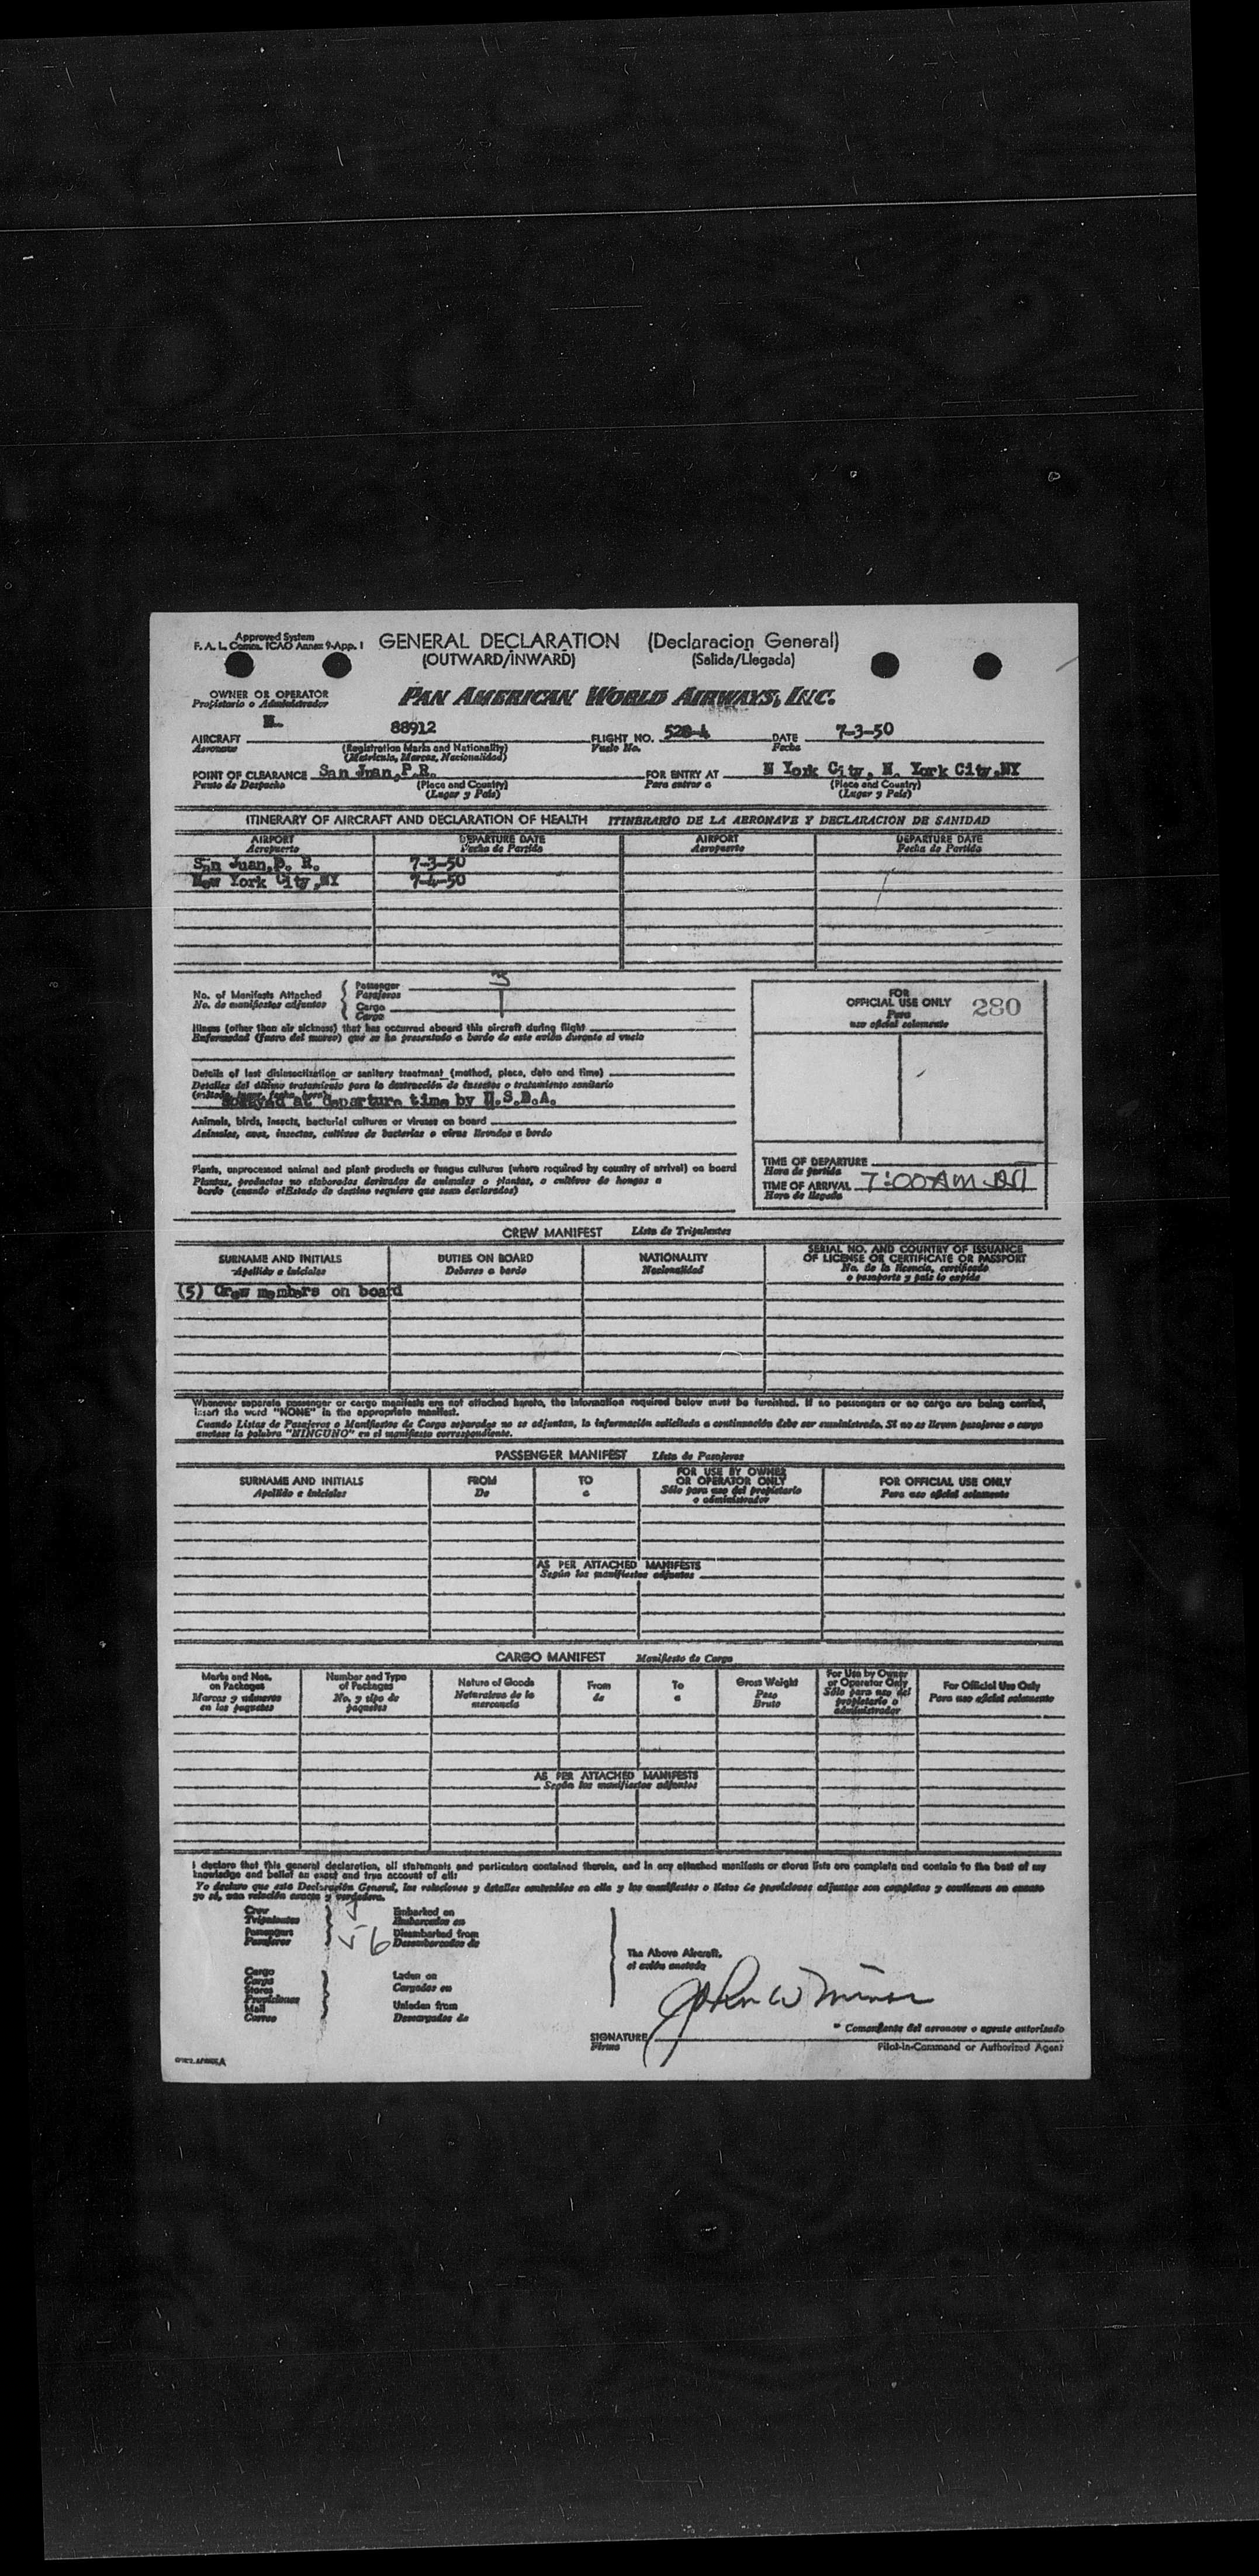 Approved System
F. A. L. Comm. ICAO Annex 9-App. 1
GENERAL DECLARATION (Declaracion General)
(OUTWARD/INWARD) (Salida/Llegada)
OWNER OR OPERATOR
Propietario o Administrador
PAN AMERICAN WORLD AIRWAYS, INC.
N.
AIRCRAFT 88912 FLIGHT NO. 528-4 DATE 7-3-50
Aeronave (Registration Marks and Nationality) Vuelo No. Fecha
(Matricula, Marcas, Nacionalidad)
POINT OF CLEARANCE San Juan, P.R. FOR ENTRY AT N York City, N. York City.NY
Punto de Despacho (Place and Country) Para entrar a (Place and Country)
(Lugar y País) (Lugar y País)
ITINERARY OF AIRCRAFT AND DECLARATION OF HEALTH ITINERARIO DE LA AERONAVE Y DECLARACION DE SANIDAD
AIRPORT DEPARTURE DATE AIRPORT DEPARTURE DATE
Aeropuerto Fecha de Partida Aeropuerto Fecha de Partida
San Juan,P. R. 7-3-50
New York City,NY 7-4-50
No. of Manifests Attached
No. de manifiestos adjuntos
Passenger 3
Pasajeros
Cargo 1
Cargo
FOR
OFFICIAL USE ONLY 280
Para
uso oficial solamente
Illness (other than air sickness) that has occurred aboard this aircraft during flight
Enfermedad (fuera del mareo) que se ha presentado a bordo de este avión durante el vuelo
Details of last disinsectization or sanitary treatment (method, place, date and time)
Detalles del último tratamiento para la destrucción de insectos o tratamiento sanitario
(método, lugar, fecha, hora)
Sprayed at departure time by U.S.D.A.
Animals, birds, insects, bacterial cultures or viruses on board
Animales, aves, insectos, cultivos de bacterias o virus llevados a bordo
Plants, unprocessed animal and plant products or fungus cultures (where required by country of arrival) on board
Plantas, productos no elaborados derivados de animales o plantas, o cultivos de hongos a
bordo (cuando el Estado de destino requiere que sean declarados)
TIME OF DEPARTURE
Hora de partida
TIME OF ARRIVAL 7:00AM
Hora de llegada
CREW MANIFEST Lista de Tripulantes
SURNAME AND INITIALS DUTIES ON BOARD NATIONALITY SERIAL NO. AND COUNTRY OF ISSUANCE
OF LICENSE OR CERTIFICATE OR PASSPORT
Apellido e iniciales Deberes a bordo Nacionalidad No. de la licencia, certificado
o pasaporte y país lo expide
(5) Crew members on board
Whenever separate passenger or cargo manifests are not attached hereto, the information required below must be furnished. If no passengers or no cargo are being carried,
insert the word "NONE" in the appropriate manifest.
Cuando Listas de Pasajeros o Manifiestos de Carga separados no se adjuntan, la información solicitada a continuación debe ser suministrada. Si no se llevan pasajeros o carga
anotese la palabra "NINGUNO" en el manifiesto correspondiente.
PASSENGER MANIFEST Lista de Pasajeros
SURNAME AND INITIALS FROM TO FOR USE BY OWNER
OR OPERATOR ONLY FOR OFFICIAL USE ONLY
Apellido e iniciales De a Sólo para uso del propietario
o administrador Para uso oficial solamente
AS PER ATTACHED MANIFESTS
Según los manifiestos adjuntos
CARGO MANIFEST Manifiesto de Carga
Marks and Nos.
on Packages
Marcas y números
en los paquetes
Number and Type
of Packages
No. y tipo de
paquetes
Nature of Goods
Naturaleza de la
mercancía
From
de
To
a
Gross Weight
Peso
Bruto
For Use by Owner
or Operator Only
Sólo para uso del
propietario o
administrador
For Official Use Only
Para uso oficial solamente
AS PER ATTACHED MANIFESTS
Según los manifiestos adjuntos
I declare that this general declaration, all statements and particulars contained therein, and in any attached manifests or stores lists are complete and contain to the best of my
knowledge and belief an exact and true account of all:
Yo declaro que esta Declaración General, las relaciones y detalles contenidos en ella y los manifiestos o listas de provisiones adjuntos son completos y contienen en cuanto
yo sé, una relación exacta y verdadera.
Crew
Tripulantes
Passengers
Pasajeros
56
Embarked on
Embarcados en
Disembarked from
Desembarcados de
Cargo
Carga
Stores
Provisiones
Mail
Correo
Laden on
Cargados en
Unladen from
Descargados de
The Above Aircraft.
el avión anotado
John W Miner
SIGNATURE
Firma
* Comandante del aeronave o agente autorizado
Pilot-in-Command or Authorized Agent